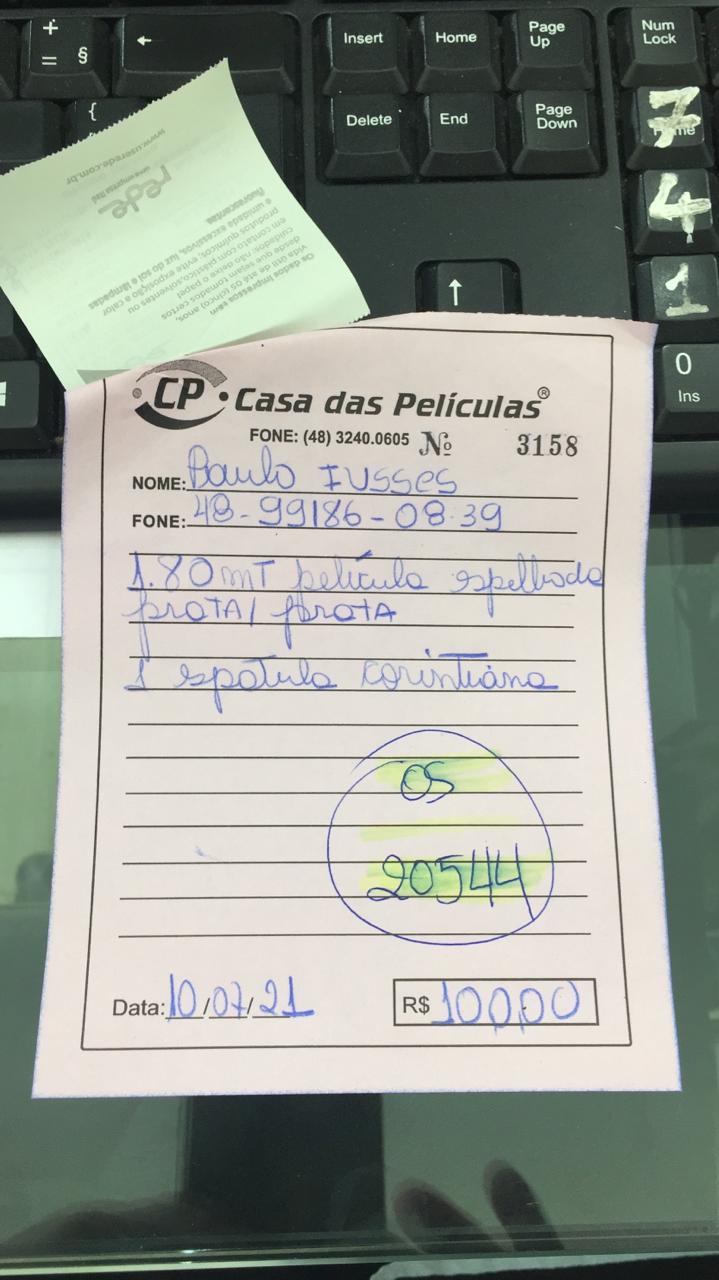 +
= §
←
Insert
Home
Page
Up
Num
Lock
{
Delete
End
Page
Down
7
4
1
↑
0
Ins
www.userede.com.br
rede
uma empresa Itaú
Os dados impressos têm
vida útil de até 05 (cinco) anos,
desde que sejam tomados certos
cuidados: não deixe o papel
em contato com plástico, solventes ou
produtos químicos, evite exposição a calor
e umidade excessivos, luz do sol e lâmpadas
fluorescentes.
CP Casa das Películas®
FONE: (48) 3240.0605 Nº 3158
NOME: Paulo IUSSES
FONE: 48-99186-08.39
1.80 mT película espelhada
prata/ prata
1 espátula corintiana
OS
20544
Data: 10/07/21
R$ 100,00